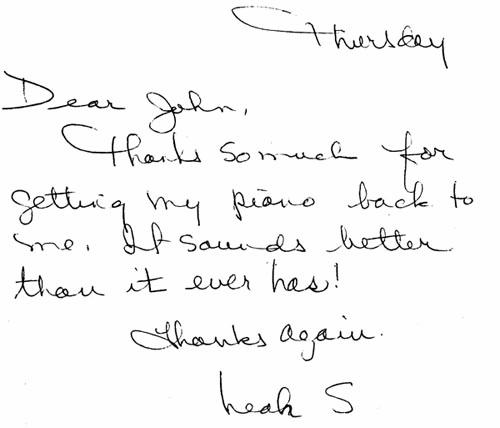 Thursday
Dear John,
Thanks so much for
getting my piano back to
me. It sounds better
than it ever has!
Thanks again.
Leah S